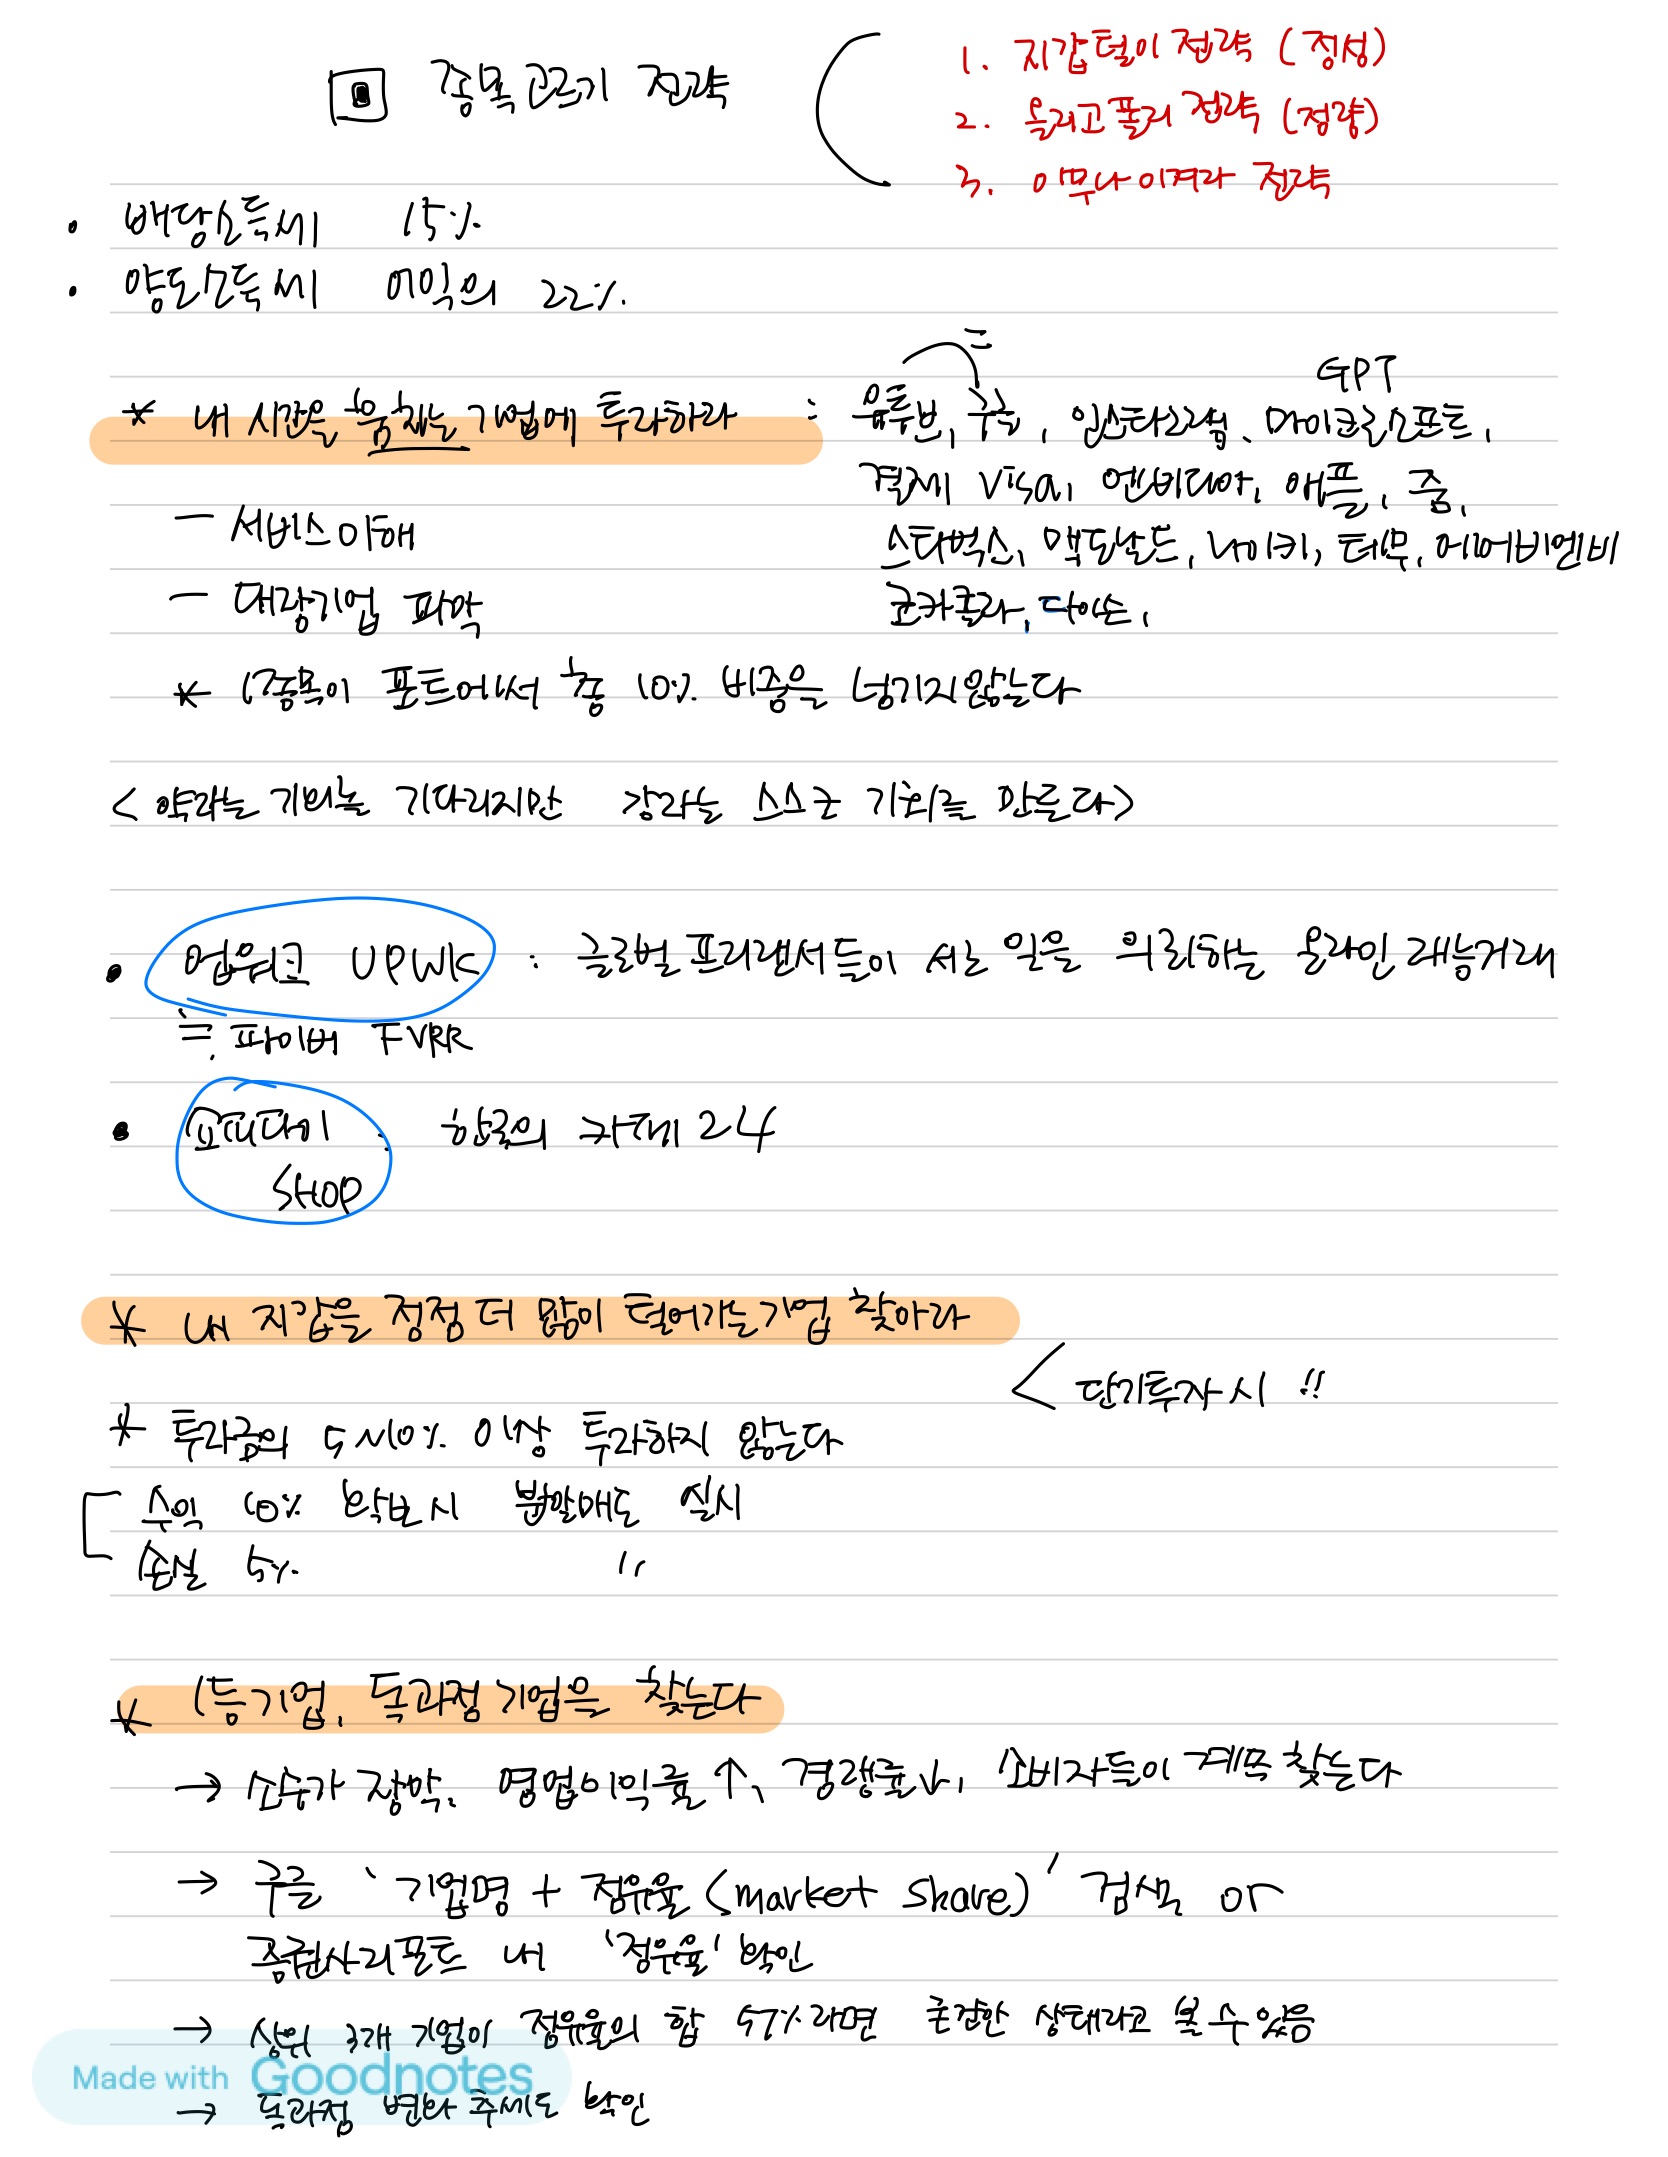 종목고르기 전략
1. 지갑털이 전략 (정성)
2. 올리고폴리 전략 (정량)
3. 아무나이겨라 전략
• 배당소득세 15%
• 양도소득세 이익의 22%.
* 내 시간을 훔치는 기업에 투자하라 : 유튜브, 구글, 인스타그램, 마이크로소프트,
GPT
결제 Visa, 엔비디아, 애플, 줌,
- 서비스이해
스타벅스, 맥도날드, 나이키, 테무, 에어비엔비
- 대장기업 파악
코카콜라, 다이슨,
* 1종목이 포트에서 총 10% 비중을 넘기지않는다
<약자는 기회를 기다리지만 강자는 스스로 기회를 만든다>
• 업워크 UPWK : 글로벌 프리랜서들이 서로 일을 의뢰하는 온라인 재능거래
≒ 파이버 FVRR
• 쇼피파이 : 한국의 카페24
SHOP
* 내 지갑을 점점 더 많이 털어가는기업 찾아라
< 단기투자시 !!
* 투자금의 5~10% 이상 투자하지 않는다
수익 10% 확보시 분할매도 실시
손실 5% "
* 1등기업, 독과점기업을 찾는다
→ 소수가 장악. 영업이익률↑, 경쟁률↓, 소비자들이 계속 찾는다
→ 구글 '기업명 + 점유율 (market share)' 검색 or
증권사리포트 내 '점유율' 확인
→ 상위 3개 기업이 점유율의 합 57%라면 온전한 상태라고 볼 수 있음
→ 독과점 변화 추세도 확인
Made with Goodnotes